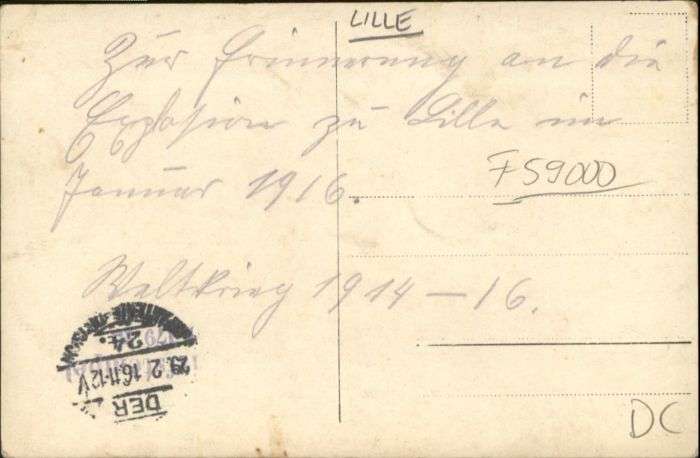 LILLE
Zur Erinnerung an die
Explosion zu Lille im
Januar 1916.
F59000
Weltkrieg 1914-16.
24.
29.2.16.11-12V
DER
DC